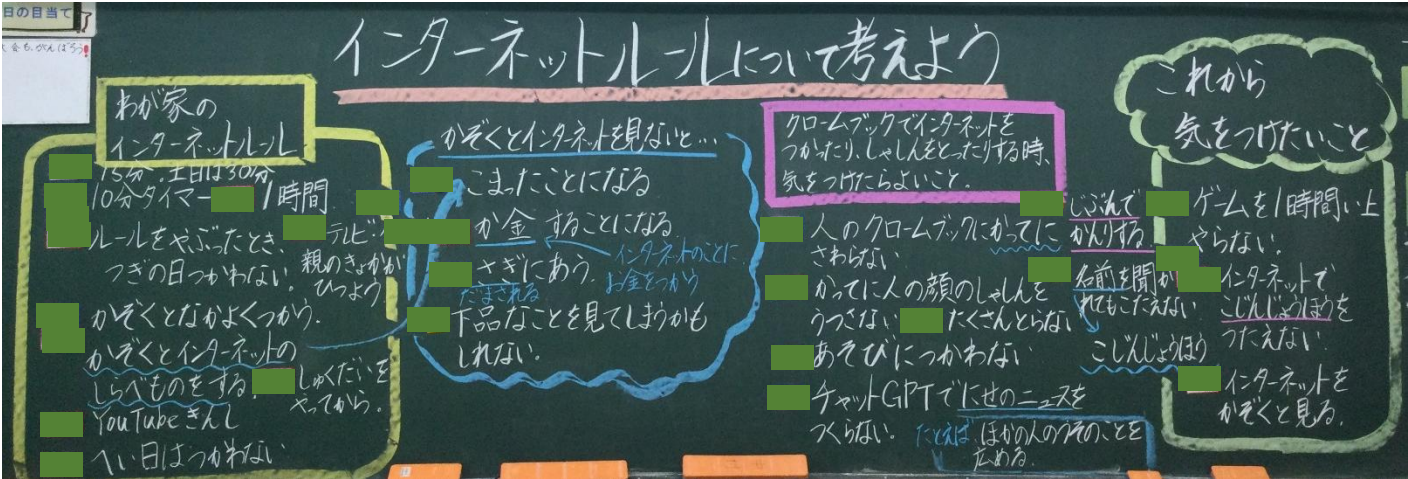 日の目当て
インターネットルールについて考えよう
わが家の
インターネットルール
15分.土日は30分
10分タイマー
1時間
ルールをやぶったとき
つぎの日つかわない.
テレビ
親のきょかが
ひつよう
かぞくとなかよくつかう.
かぞくとインターネットの
しらべものをする.
しゅくだいを
やってから.
YouTubeきんし
へい日はつかわない
かぞくとインターネットを見ないと…
こまったことになる
か金することになる
インターネットのことに
お金をつかう
さぎにあう.
だまされる
下品なことを見てしまうかも
しれない.
クロームブックでインターネットを
つかったり、しゃしんをとったりする時、
気をつけたらよいこと.
人のクロームブックにかってに
さわらない
かってに人の顔のしゃしんを
うつさない
たくさんとらない
あそびにつかわない
チャットGPTでにせのニュースを
つくらない.
たとえば
ほかの人のうそのことを
広める.
じぶんで
かんりする.
名前を聞か
れてもこたえない
こじんじょうほう
これから
気をつけたいこと
ゲームを1時間い上
やらない.
インターネットで
こじんじょうほうを
つたえない.
インターネットを
かぞくと見る.